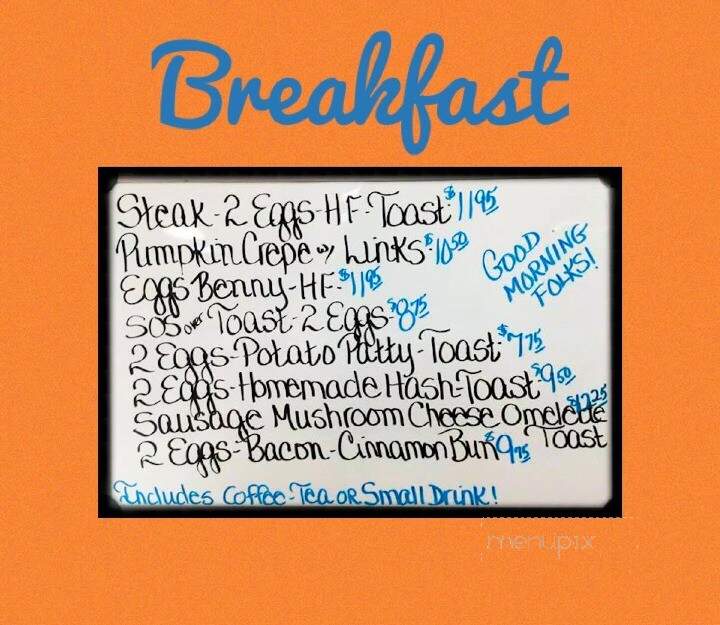 Breakfast
Steak-2 Eggs-HF-Toast $11.95
Pumpkin Crepe w/ Links $10.50
Eggs Benny-HF- $11.95
SOS over Toast-2 Eggs- $8.75
2 Eggs-Potato Patty-Toast $7.75
2 Eggs-Homemade Hash-Toast $9.50
Sausage Mushroom Cheese Omelette $12.25
Toast
2 Eggs-Bacon-Cinnamon Bun $9.75
GOOD
MORNING
FOLKS!
Includes Coffee-Tea OR Small Drink!
menupix